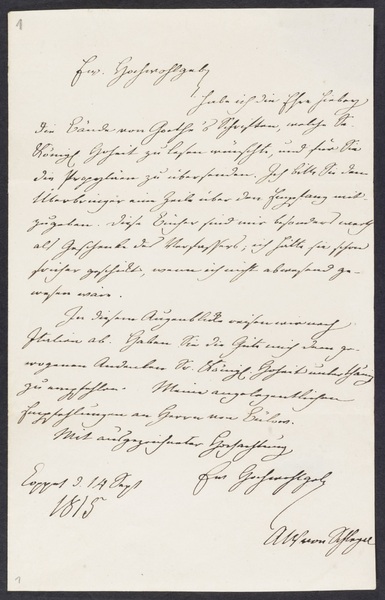 1
Ew. Hochwohlgeb
habe ich die Ehre hiebey
die Bände von Goethe's Schriften, welche Se.
Königl Hoheit zu lesen wünschte, und für Sie
die Propyläen zu übersenden. Ich bitte Sie dem
Überbringer eine Zeile über den Empfang mit-
zugeben. Diese Bücher sind mir besonders werth
als Geschenke des Verfassers; ich hätte sie schon
früher geschickt, wenn ich nicht abwesend ge-
wesen wäre.
In diesem Augenblicke reisen wir nach
Italien ab. Haben Sie die Güte mich dem ge-
wogenen Andenken Sr. Königl Hoheit unterthänig
zu empfehlen. Meine angelegentlichen
Empfehlungen an Herrn von Bülow.
Mit ausgezeichneter Hochachtung
Ew Hochwohlgeb
Coppet d. 14 Sept
1815
AW von Schlegel